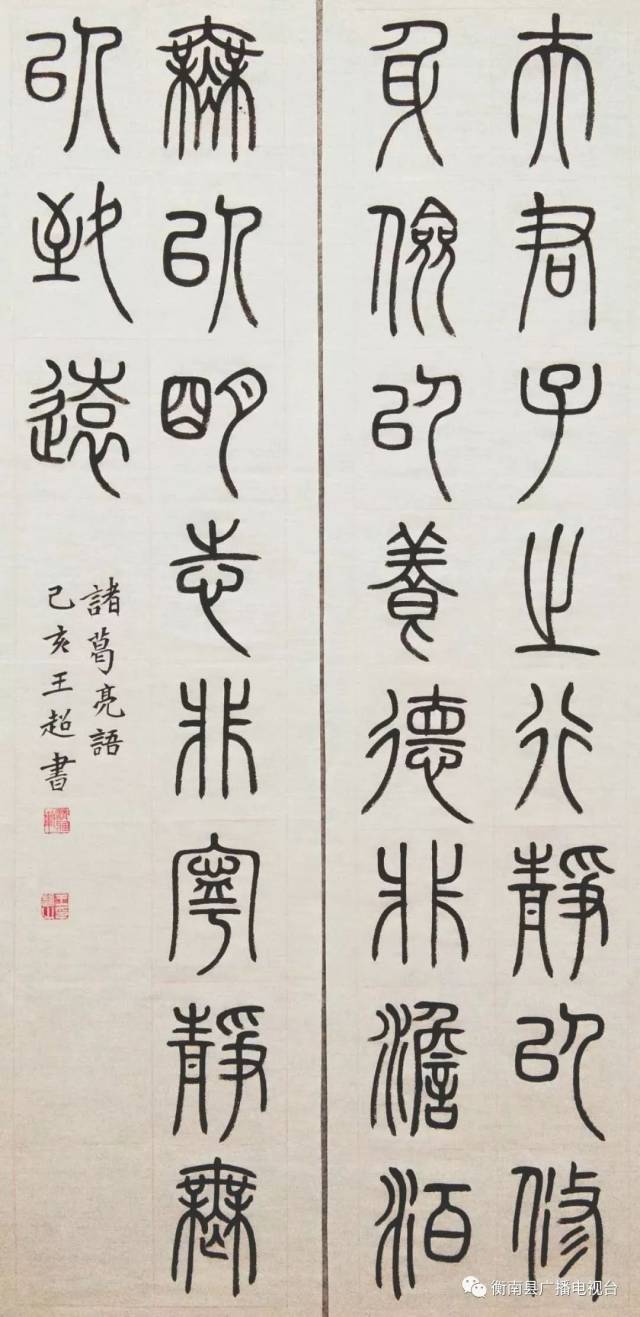 夫君子之行靜以修
身儉以養德非澹泊
無以明志非寧靜無
以致遠
諸葛亮語
己亥王超書
衡南县广播电视台